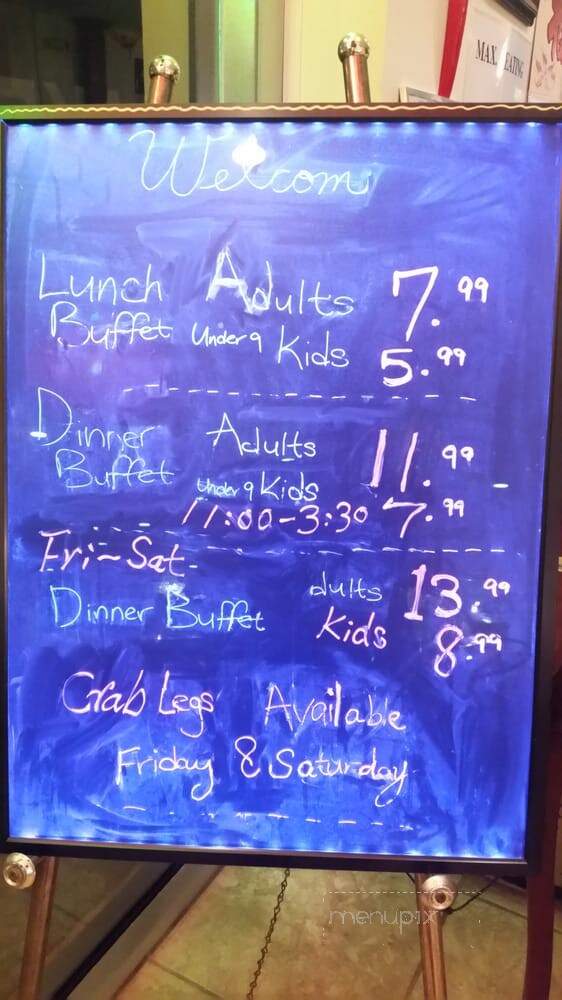 MAX. EATING
Welcom
Lunch Adults 7.99
Buffet Under 9 Kids 5.99
Dinner Adults 11.99
Buffet Under 9 Kids
11:00-3:30 7.99
Fri-Sat
Dinner Buffet dults 13.99
Kids 8.99
Crab Legs Available
Friday & Saturday
menupix